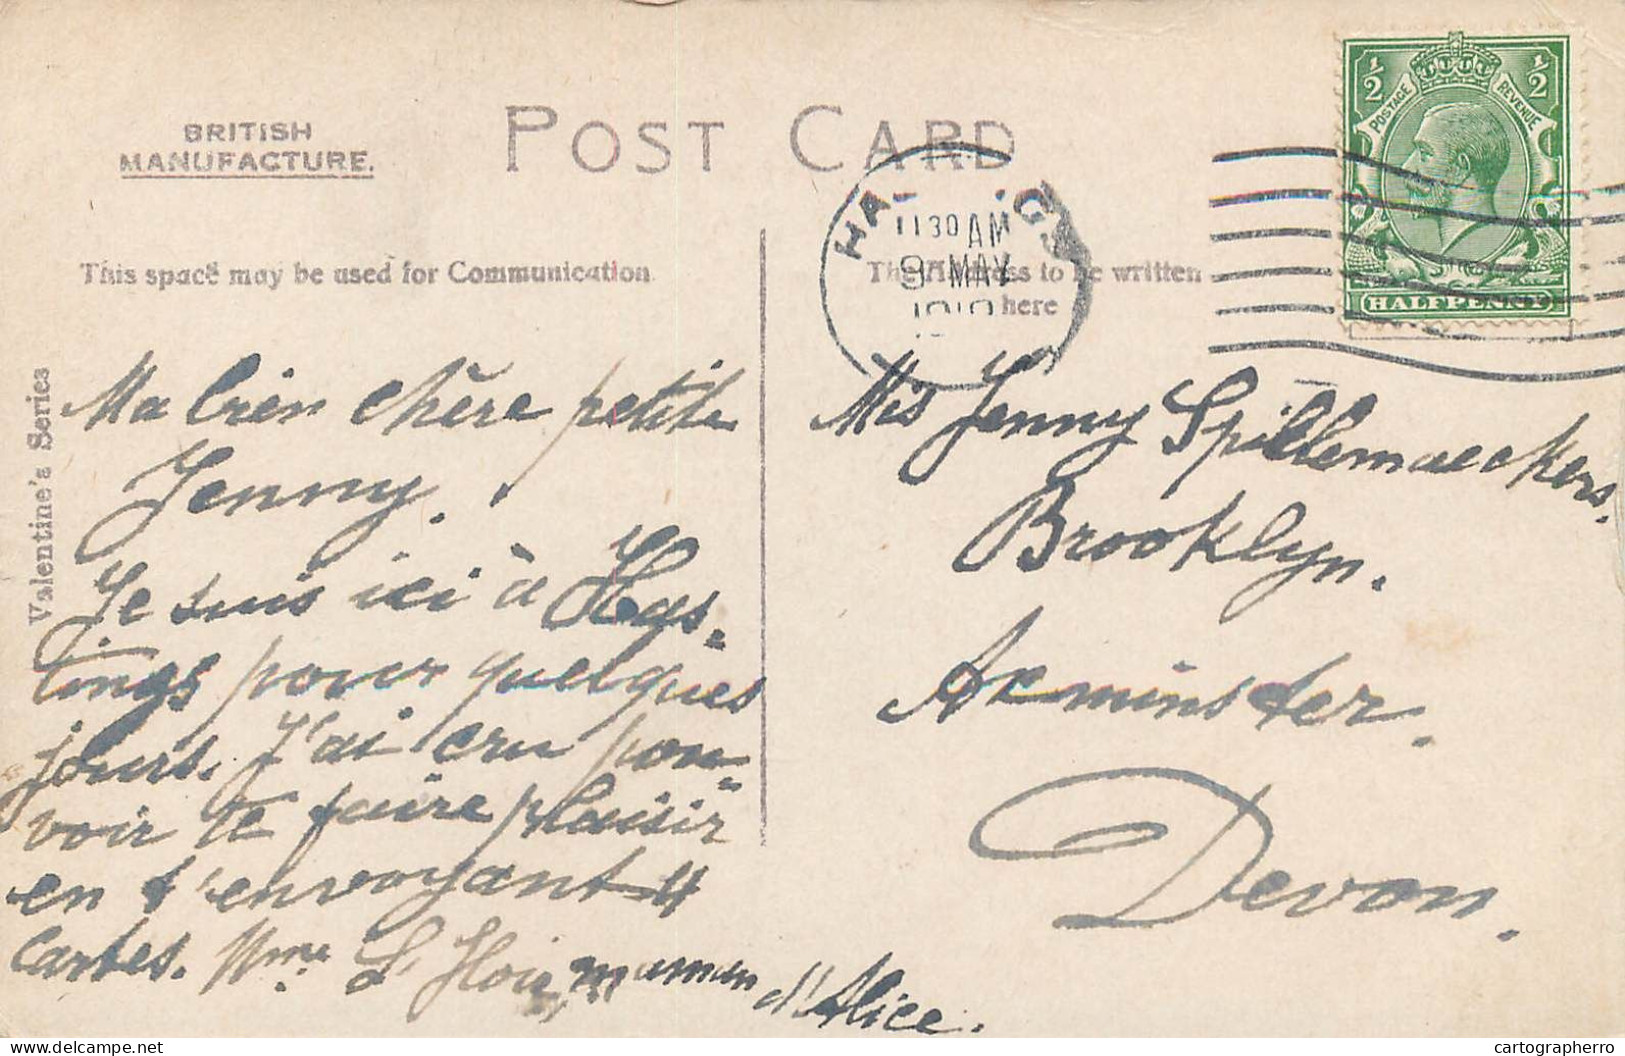 BRITISH
MANUFACTURE.
POST CARD
This space may be used for Communication
The Address to be written
here
Valentine's Series
11 30 AM
9 MAY
½ ½
POSTAGE REVENUE
HALFPENNY
Ma bien chère petite
Jenny.
Je suis ici à Has-
tings pour quelques
jours. J'ai cru pou-
voir te faire plaisir
en t'envoyant 4
cartes. Mme maman d'Alice.
Mis Jenny Spillemaeckers.
Brooklyn.
Axminster.
Devon.
cartographerro